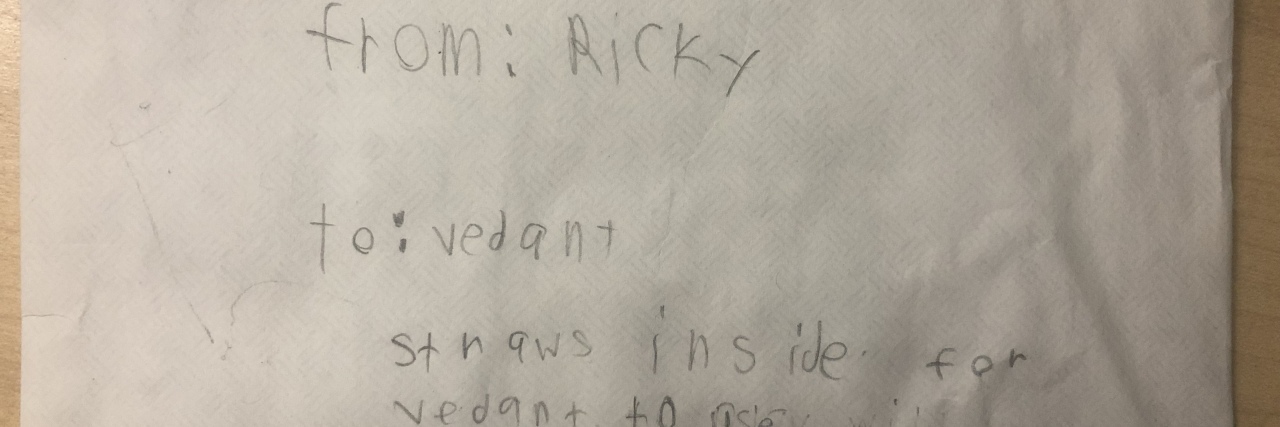 from: Ricky
to: vedant
straws inside for
vedant to